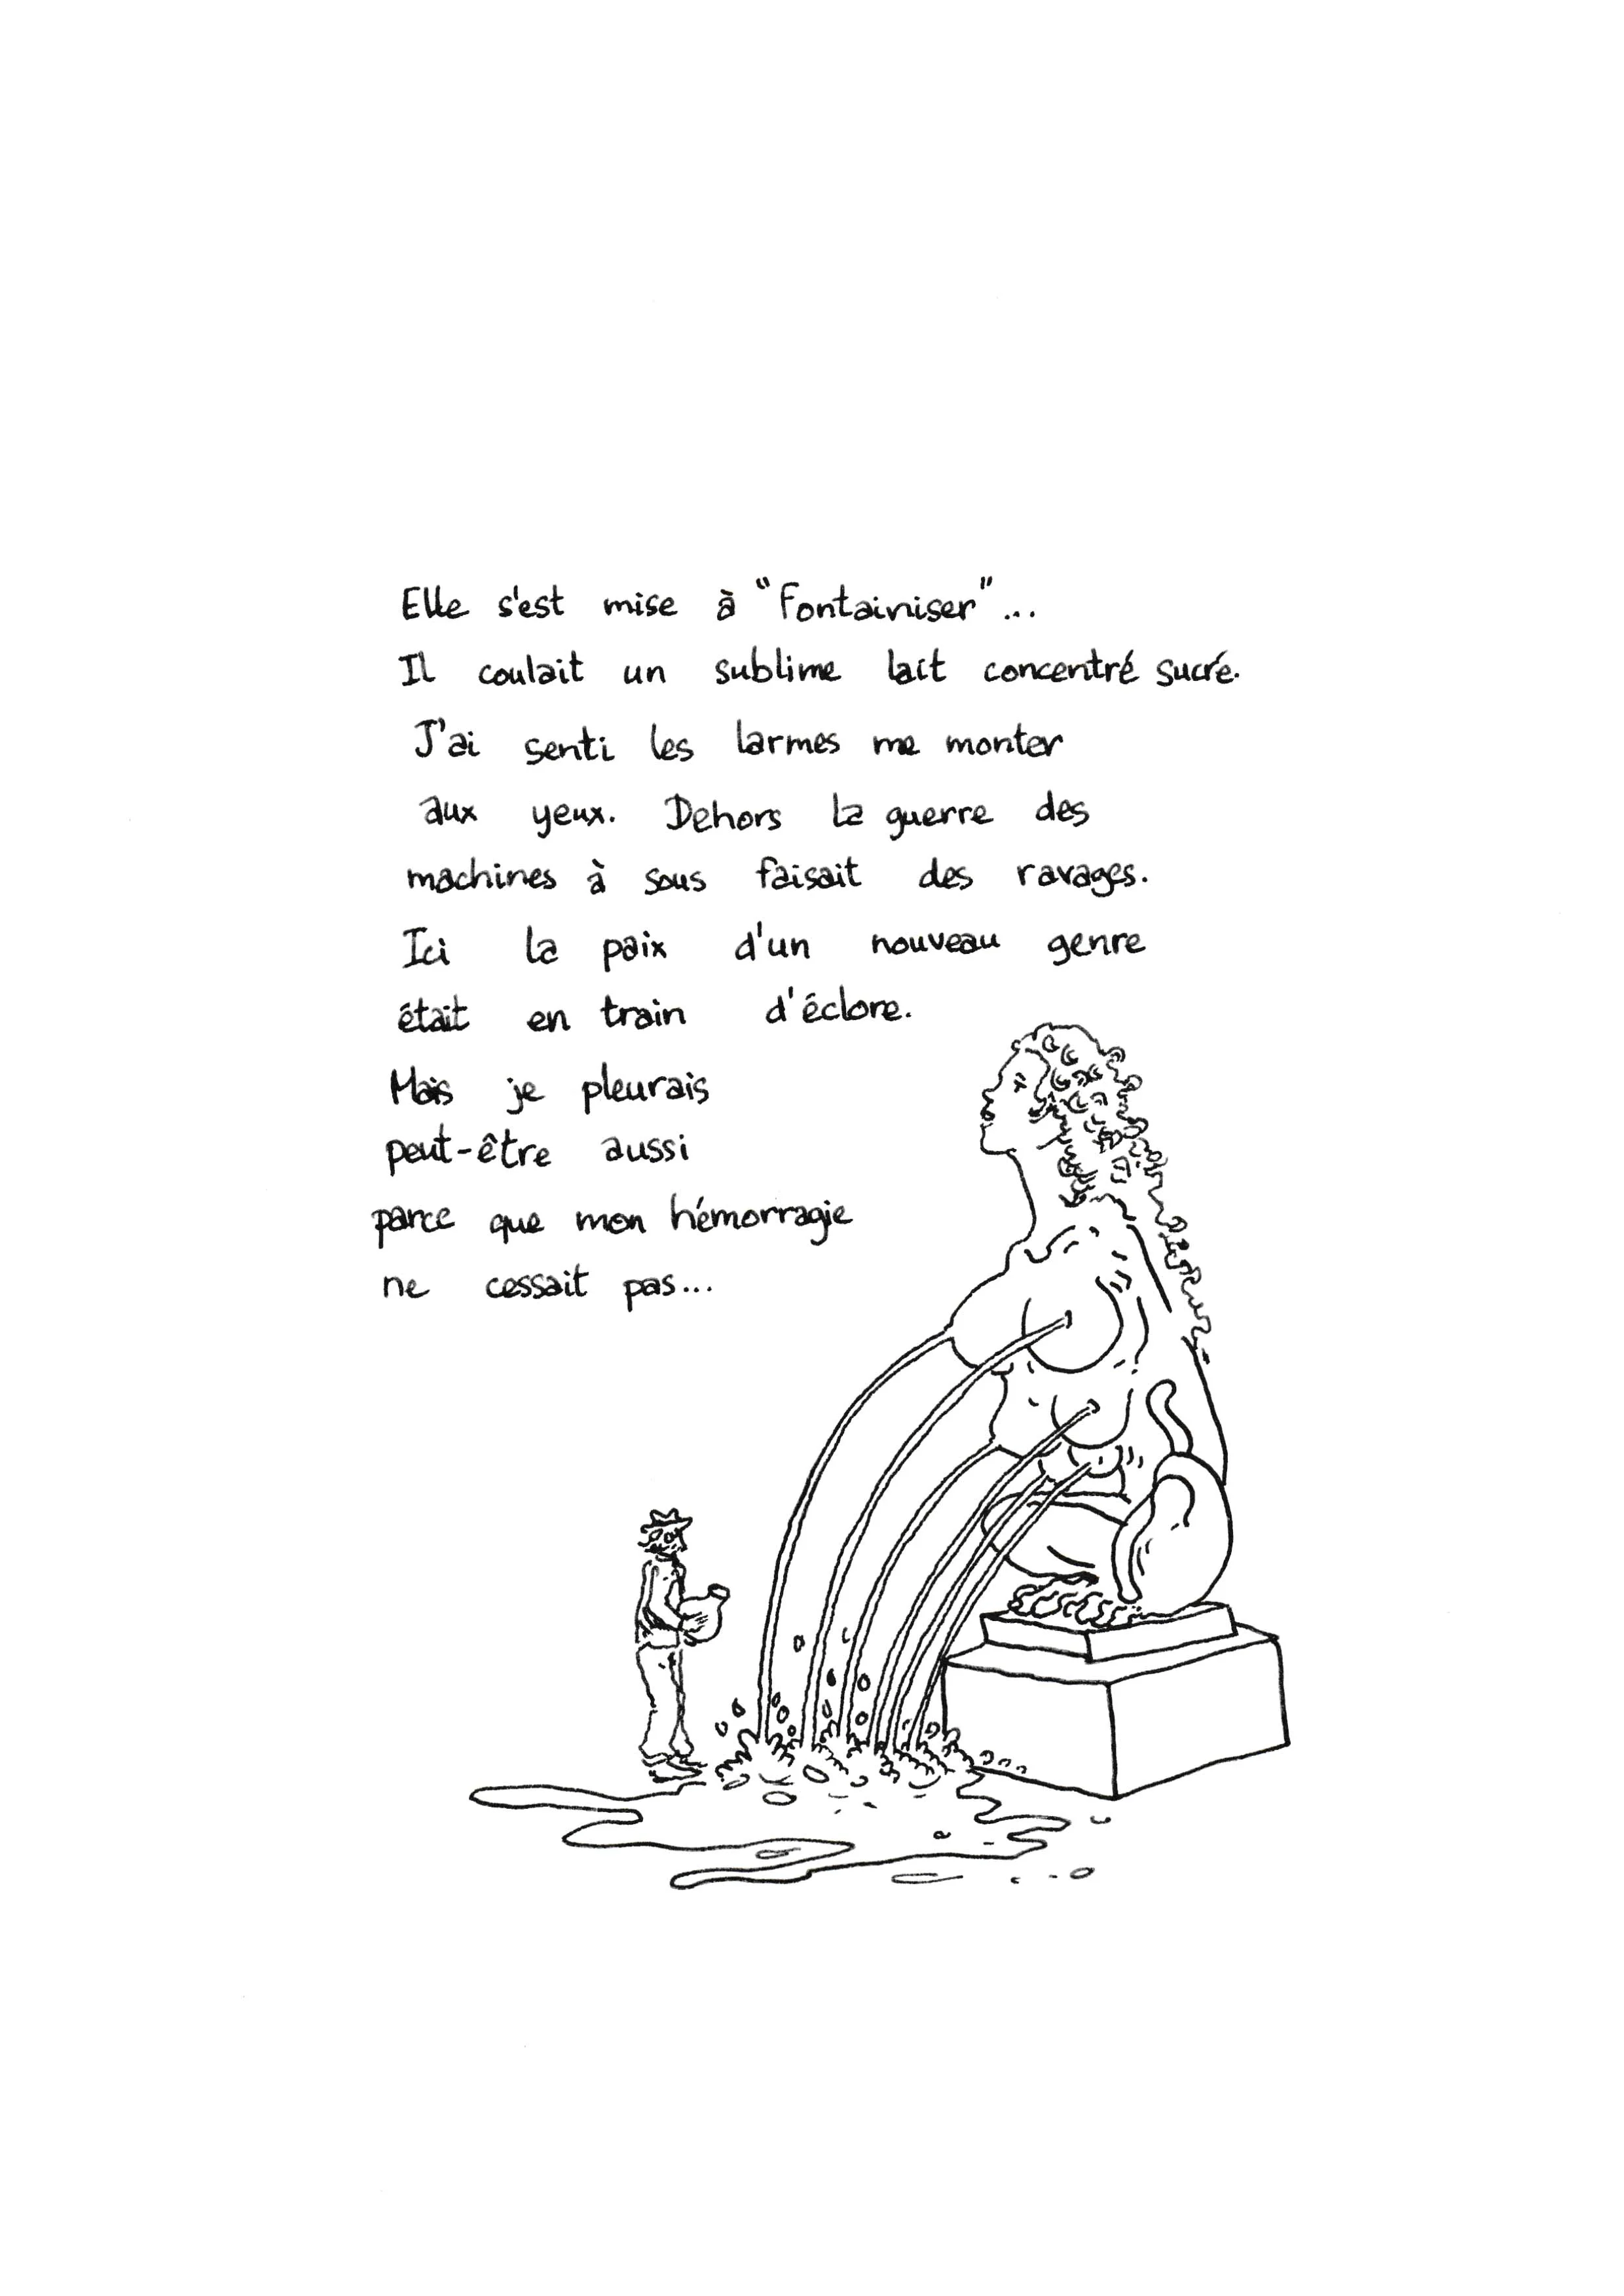 Elle s'est mise à "Fontainiser"...
Il coulait un sublime lait concentré sucré.
J'ai senti les larmes me monter
aux yeux. Dehors la guerre des
machines à sous faisait des ravages.
Ici la paix d'un nouveau genre
était en train d'éclore.
Mais je pleurais
peut-être aussi
parce que mon hémorragie
ne cessait pas...